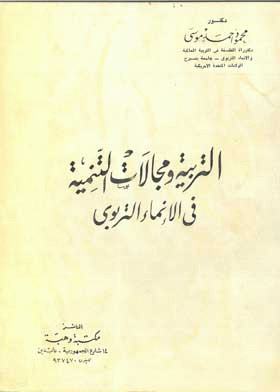 دكتور
محمود أحمد موسى
دكتوراه الفلسفة فى التربية العالمية
والانماء التربوى - جامعة
الولايات المتحدة الأمريكية
التربية ومجالات التنمية
فى الإنماء التربوى
الناشر
مكتبة وهبة
١٤ شارع الجمهورية - عابدين
٩٣٧٤٧٠